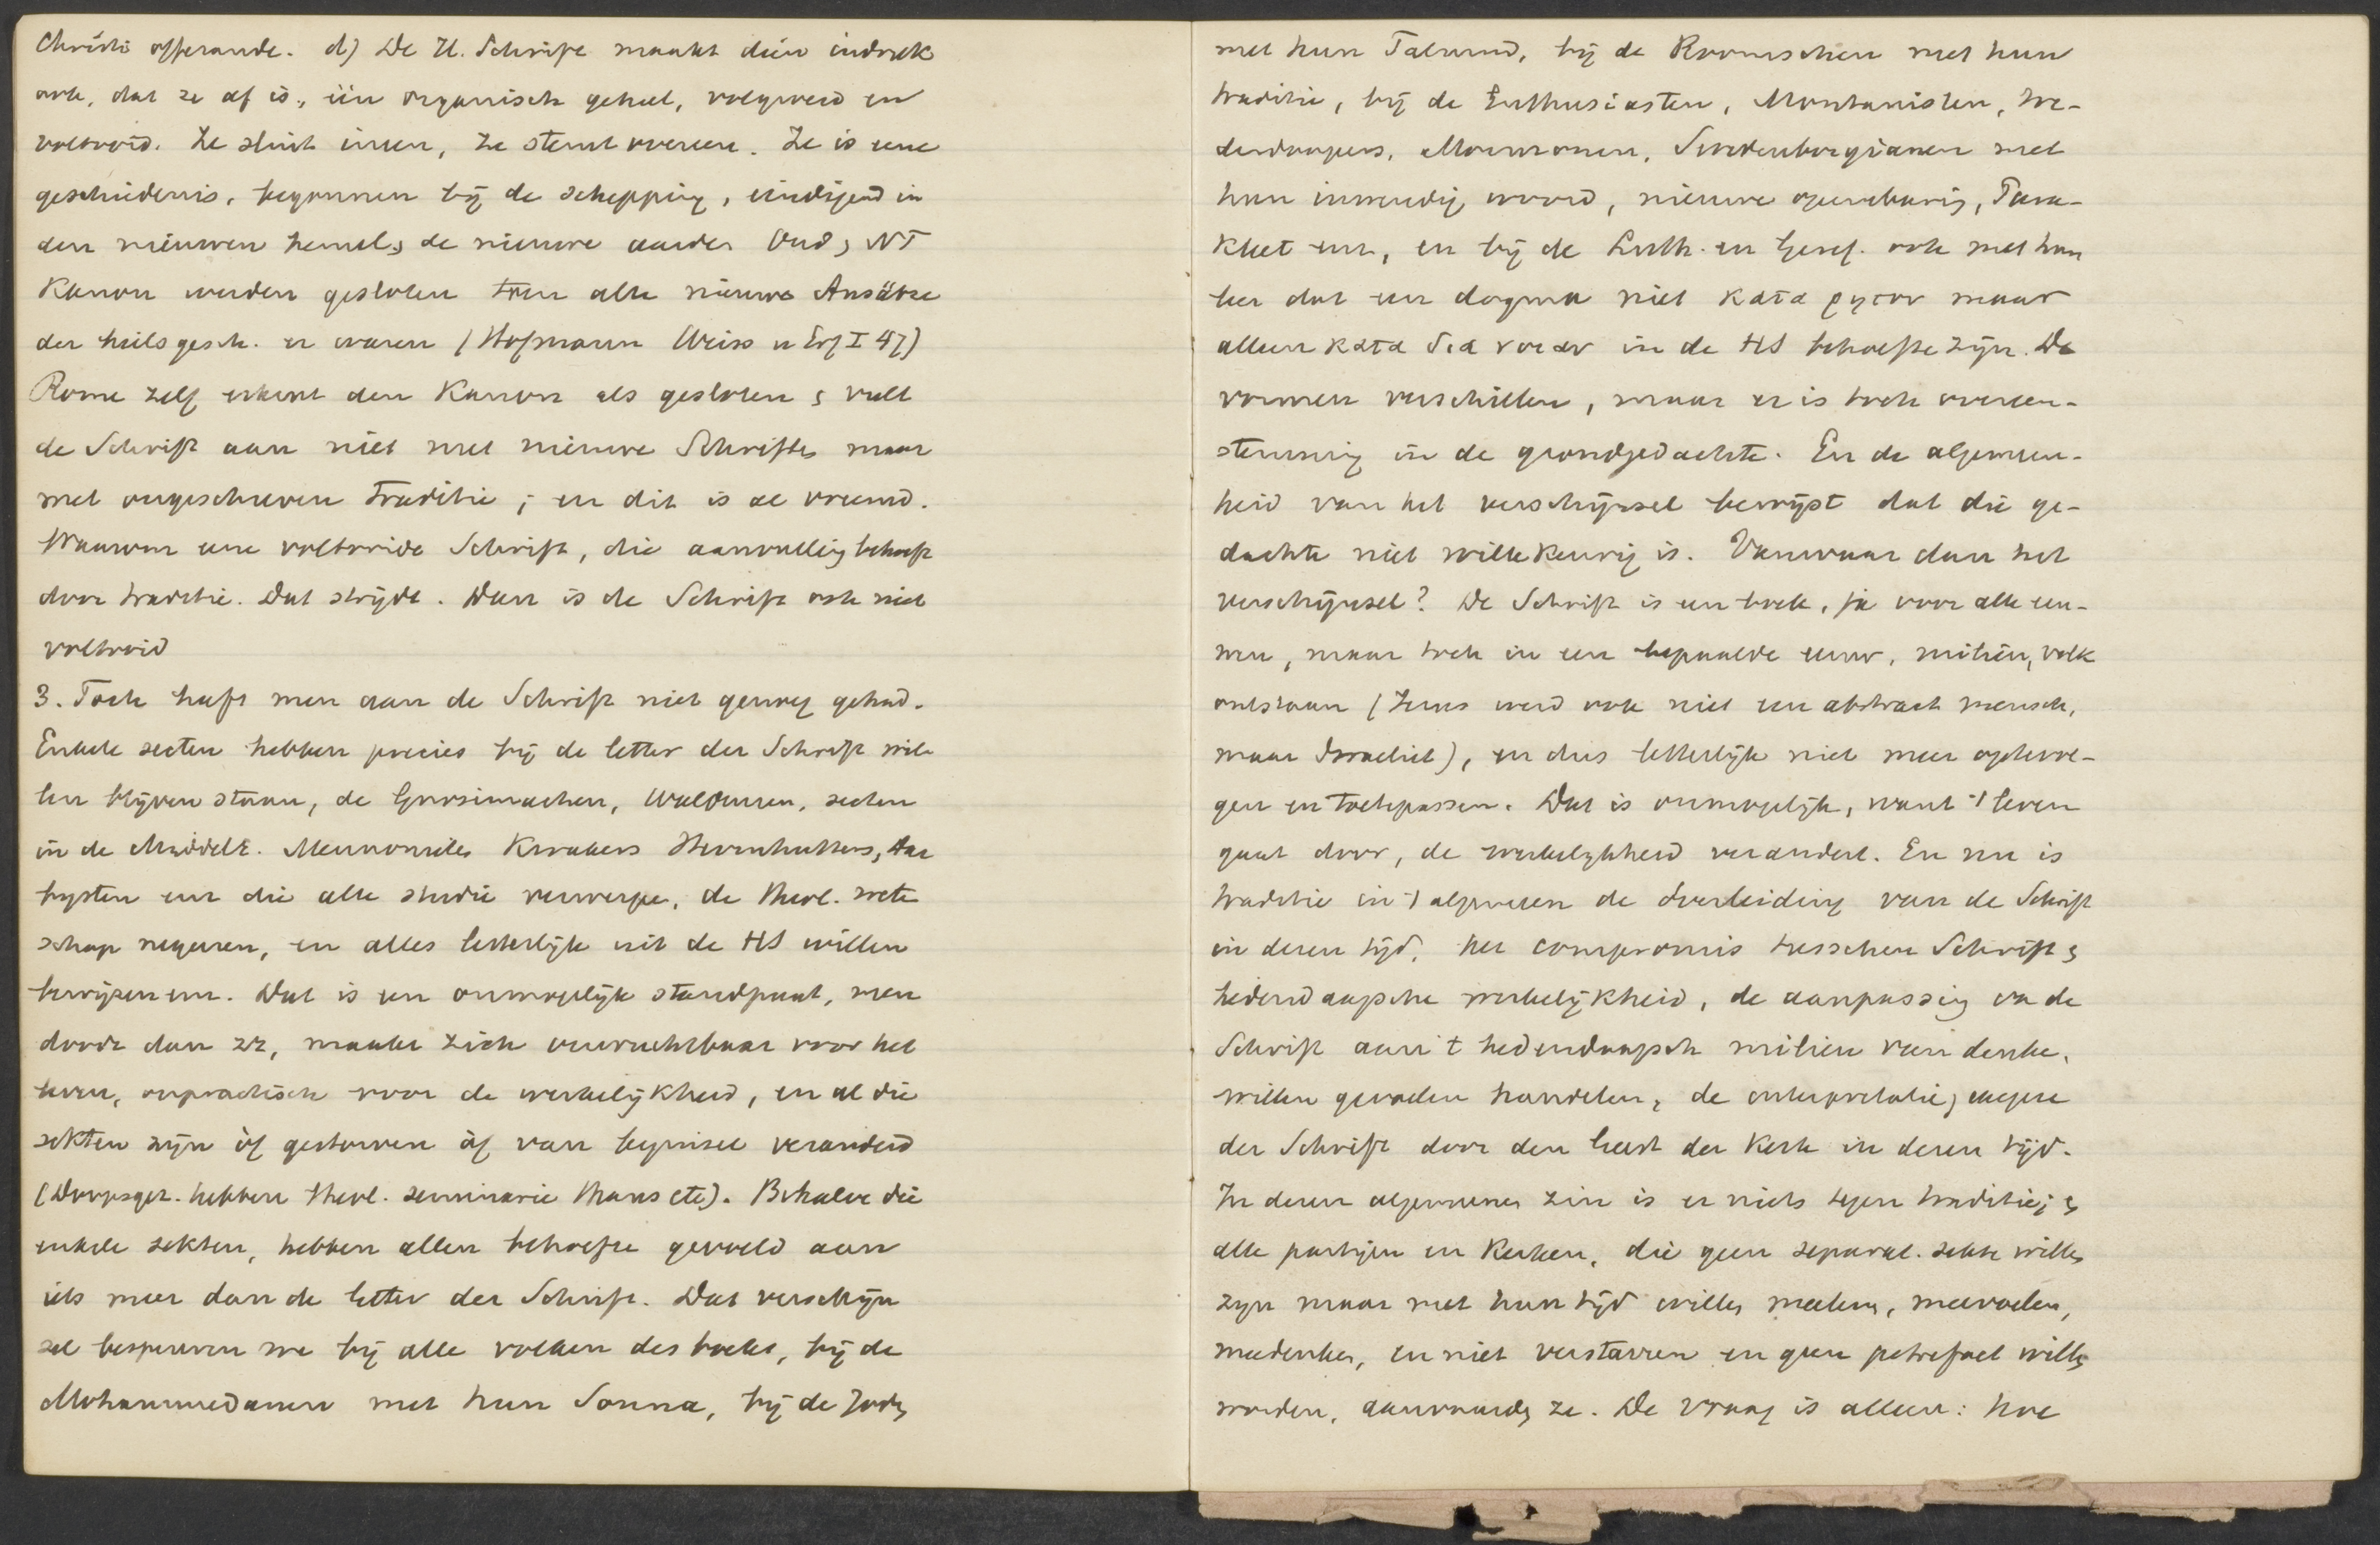 Christi offerande. d) De H. Schrift maakt dien indruk
ook, dat ze af is, één organisch geheel, volgroeid en
voltooid. Ze sluit ineen, ze stemt overeen. Ze is eene
geschiedenis, begonnen bij de schepping, eindigend in
den nieuwen hemel & de nieuwe aarde. Oud & NT
Kanon werden gesloten toen alle nieuwe Ansätze
der heilsgesch. er waren (Hofmann Weiss u Erf I 47)
Rome zelf erkent den Kanon als gesloten & vult
de Schrift aan niet met nieuwe Schriften maar
met ongeschreven traditie; en dit is al vreemd.
Waarom eene voltooide Schrift, die aanvulling behoeft
door traditie. Dat strijdt. Dan is de Schrift ook niet
voltooid
3. Toch heeft men aan de Schrift niet genoeg gehad.
Enkele secten hebben precies bij de letter der Schrift wil-
len blijven staan, de Gnosimachen, Waldensen, secten
in de Middele. Mennonites Kwakers Herrnhutters, Dar
bysten enz die alle studie verwerpen, de theol. weten
schap negeeren, en alles letterlijk uit de HS willen
bewijzen enz. Dat is een onmogelijk standpunt, men
doodt dan zz, maakt zich onvruchtbaar voor het
leven, onpractisch voor de werkelijkheid, en al die
sekten zijn òf gestorven òf van beginsel veranderd
(Doopsgez. hebben theol. seminarie thans etc). Behalve die
enkele sekten, hebben allen behoefte gevoeld aan
iets meer dan de letter der Schrift. Dat verschijn
sel bespeuren we bij alle volken des boeks, bij de
Mohammedanen met hun Sonna, bij de Joden
met hun Talmud, bij de Roomschen met hun
traditie, bij de Enthusiasten, Montanisten, We-
derdoopers, Mormonen, Swedenborgianen met
hun inwendig woord, nieuwe openbaring, Para-
kleet enz, en bij de Luth. en Geref. ook met hun
leer dat een dogma niet κατα ρητον maar
alleen κατα διανοιαν in de HS behoefte zijn. De
vormen verschillen, maar er is toch overeen-
stemming in de grondgedachte. En de algemeen-
heid van het verschijnsel bewijst dat die ge-
dachte niet willekeurig is. Vanwaar dan het
verschijnsel? De Schrift is een boek, ja voor alle eeu-
wen, maar toch in een bepaalde eeuw, milieu, volk
ontstaan (Jezus werd ook niet een abstract mensch,
maar Israeliet), en dus letterlijk niet meer optevol-
gen en toetepassen. Dat is onmogelijk, want 't leven
gaat door, de werkelijkheid verandert. En nu is
traditie in 't algemeen de overleiding van de Schrift
in dezen tijd, het compromis tusschen Schrift &
hedendaagsche werkelijkheid, de aanpassing van de
Schrift aan 't hedendaagsch milieu van denken,
willen gevoelen handelen, de interpretatie, exegese
der Schrift door den Geest der Kerk in dezen tijd.
In dezen algemeenen zin is er niets tegen traditie; &
alle partijen en Kerken, die geen separat. sekte willen
zijn maar met hun tijd willen meeleven, meevoelen,
meedenken, en niet verstarren en geen petrefact willen
worden, aanvaarden ze. De vraag is alleen: hoe